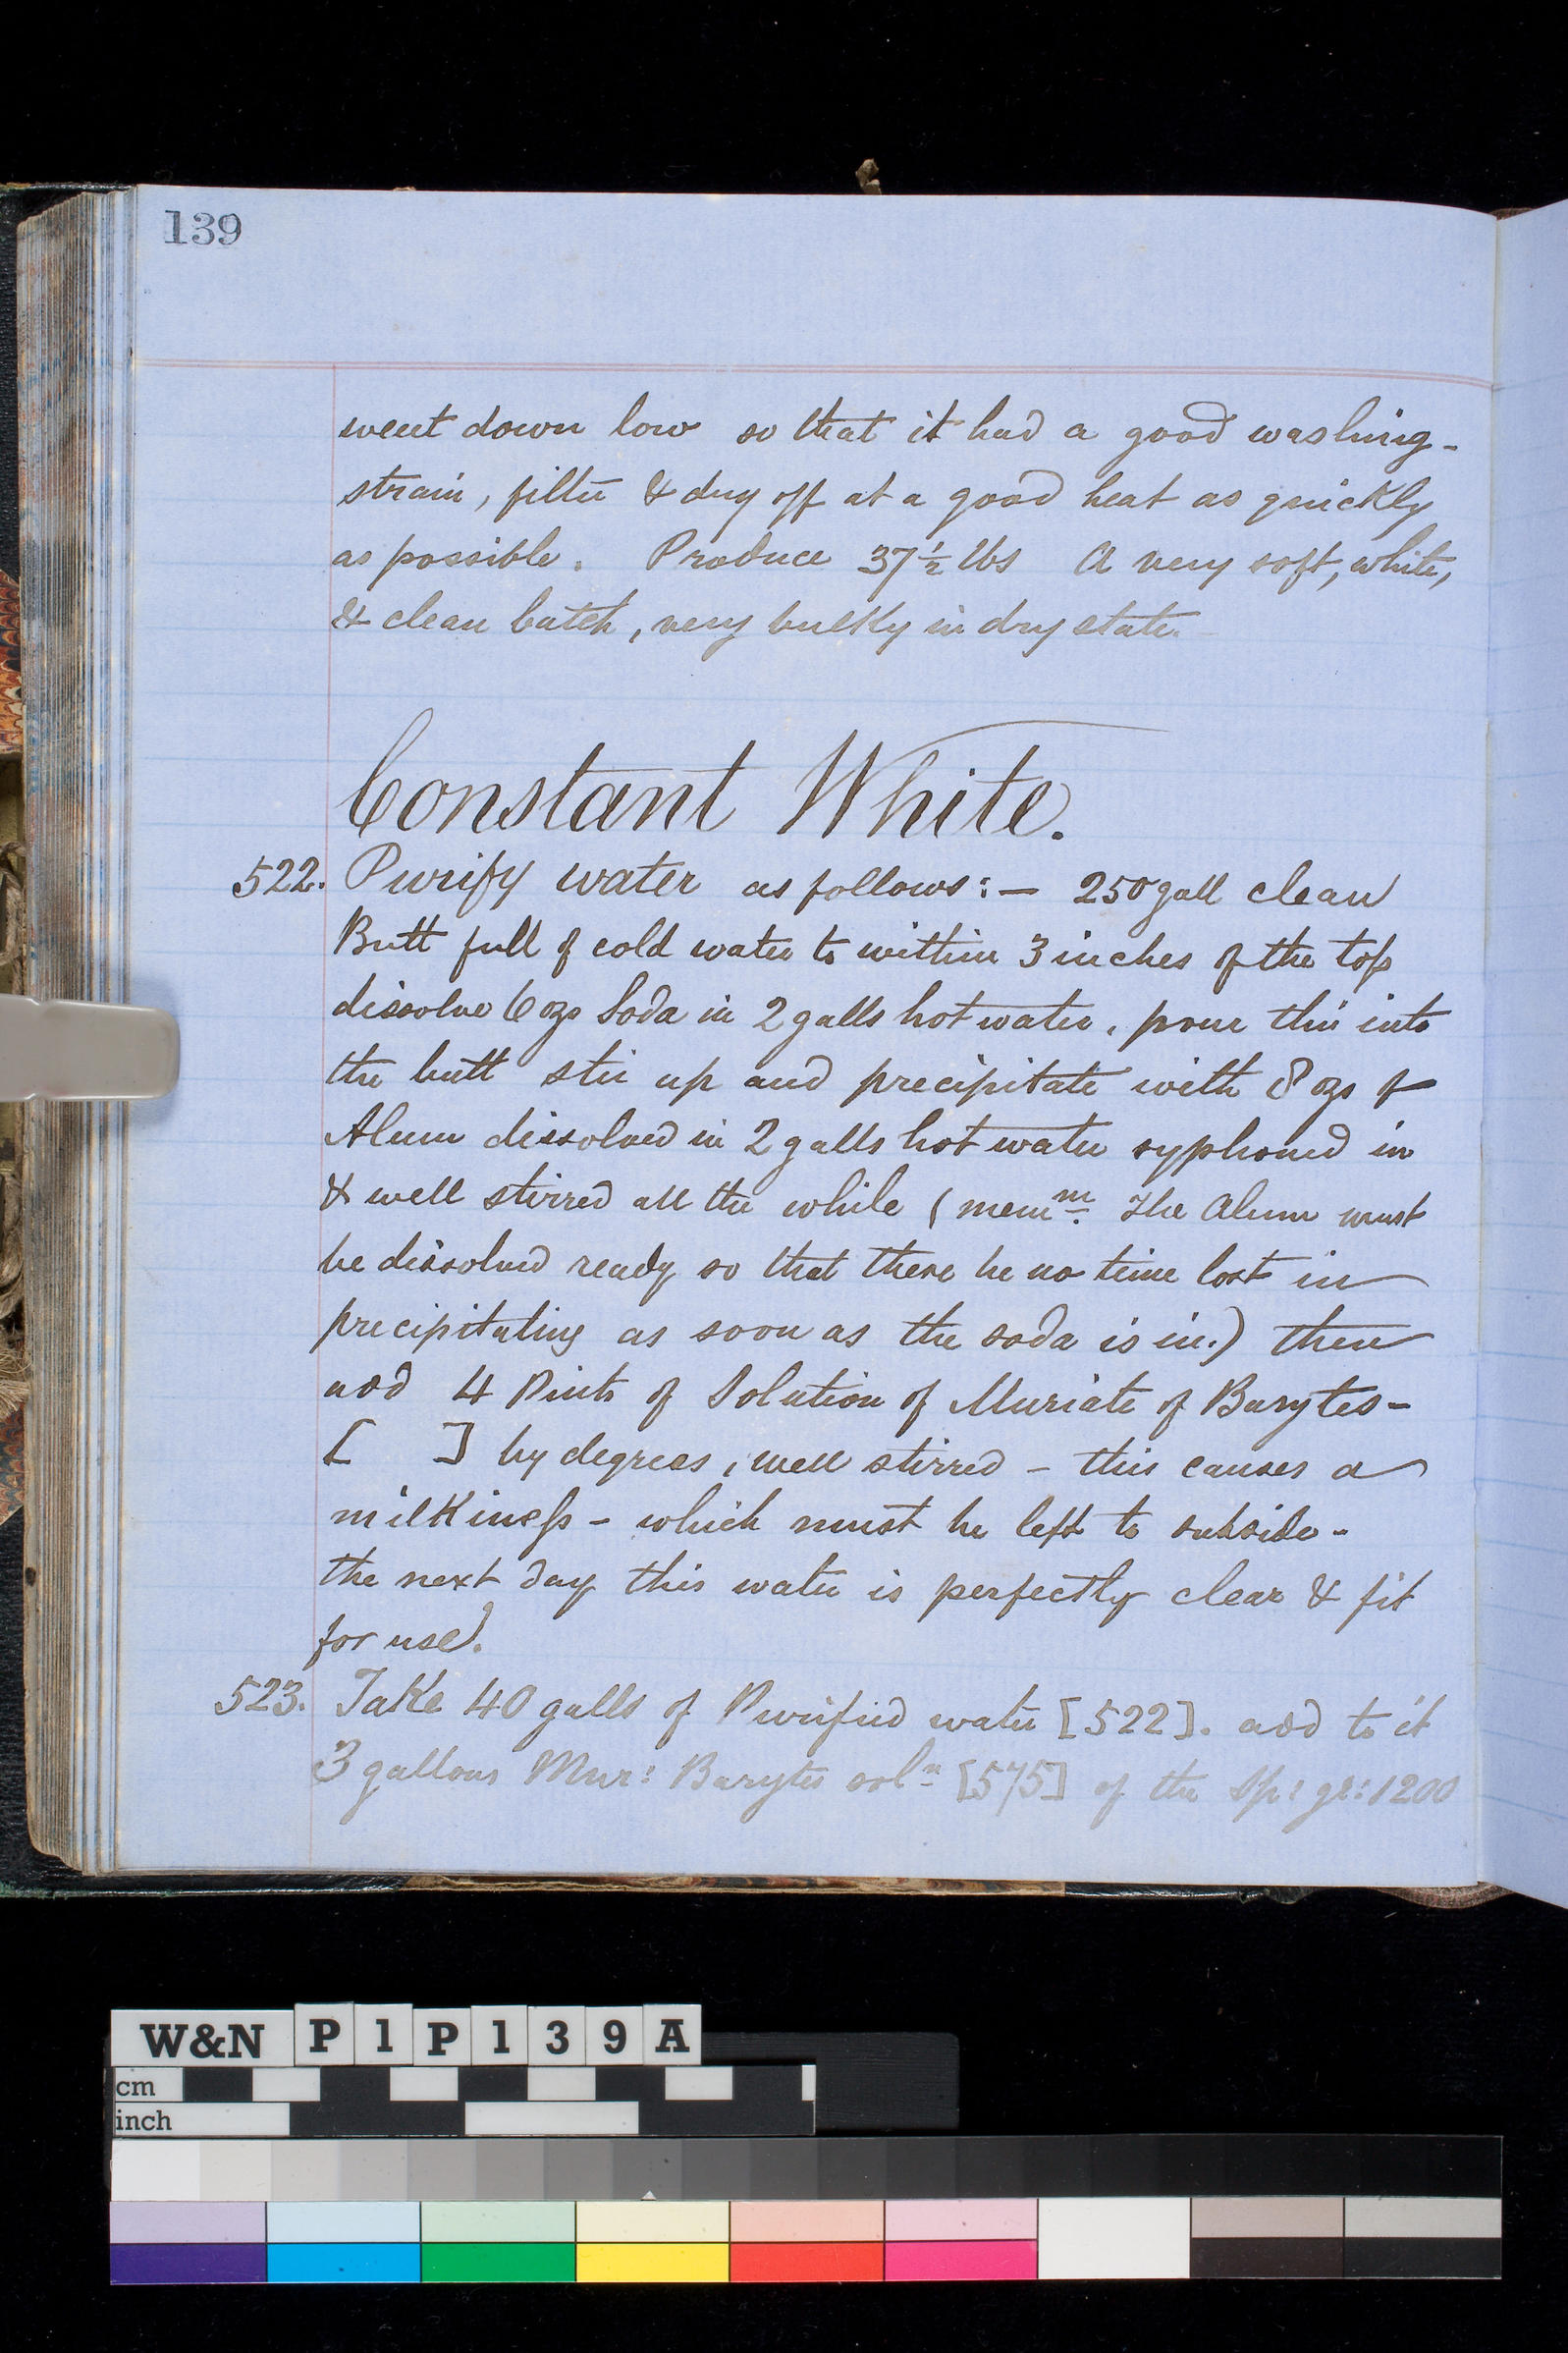 139
went down low so that it had a good washing -
strain, filter & dry off at a good heat as quickly
as possible. Produce 37½ lbs A very soft, white,
& clean batch, very bulky in dry state.
Constant White.
522. Purify water as follows:— 250 gall clean
Butt full of cold water to within 3 inches of the top
dissolve 6 ozs Soda in 2 galls hot water, pour this into
the butt stir up and precipitate with 8 ozs of
Alum dissolved in 2 galls hot water syphoned in
& well stirred all the while (memm. The Alum must
be dissolved ready so that there be no time lost in
precipitating as soon as the soda is in.) then
add 4 Pints of Solution of Muriate of Barytes -
[ ] by degrees, well stirred - this causes a
milkiness - which must be left to subside -
the next day this water is perfectly clear & fit
for use.
523. Take 40 galls of Purified water [522]. add to it
3 gallons Mur: Barytes soln [575] of the Sp: gr: 1200
W&N P1P139A
cm
inch